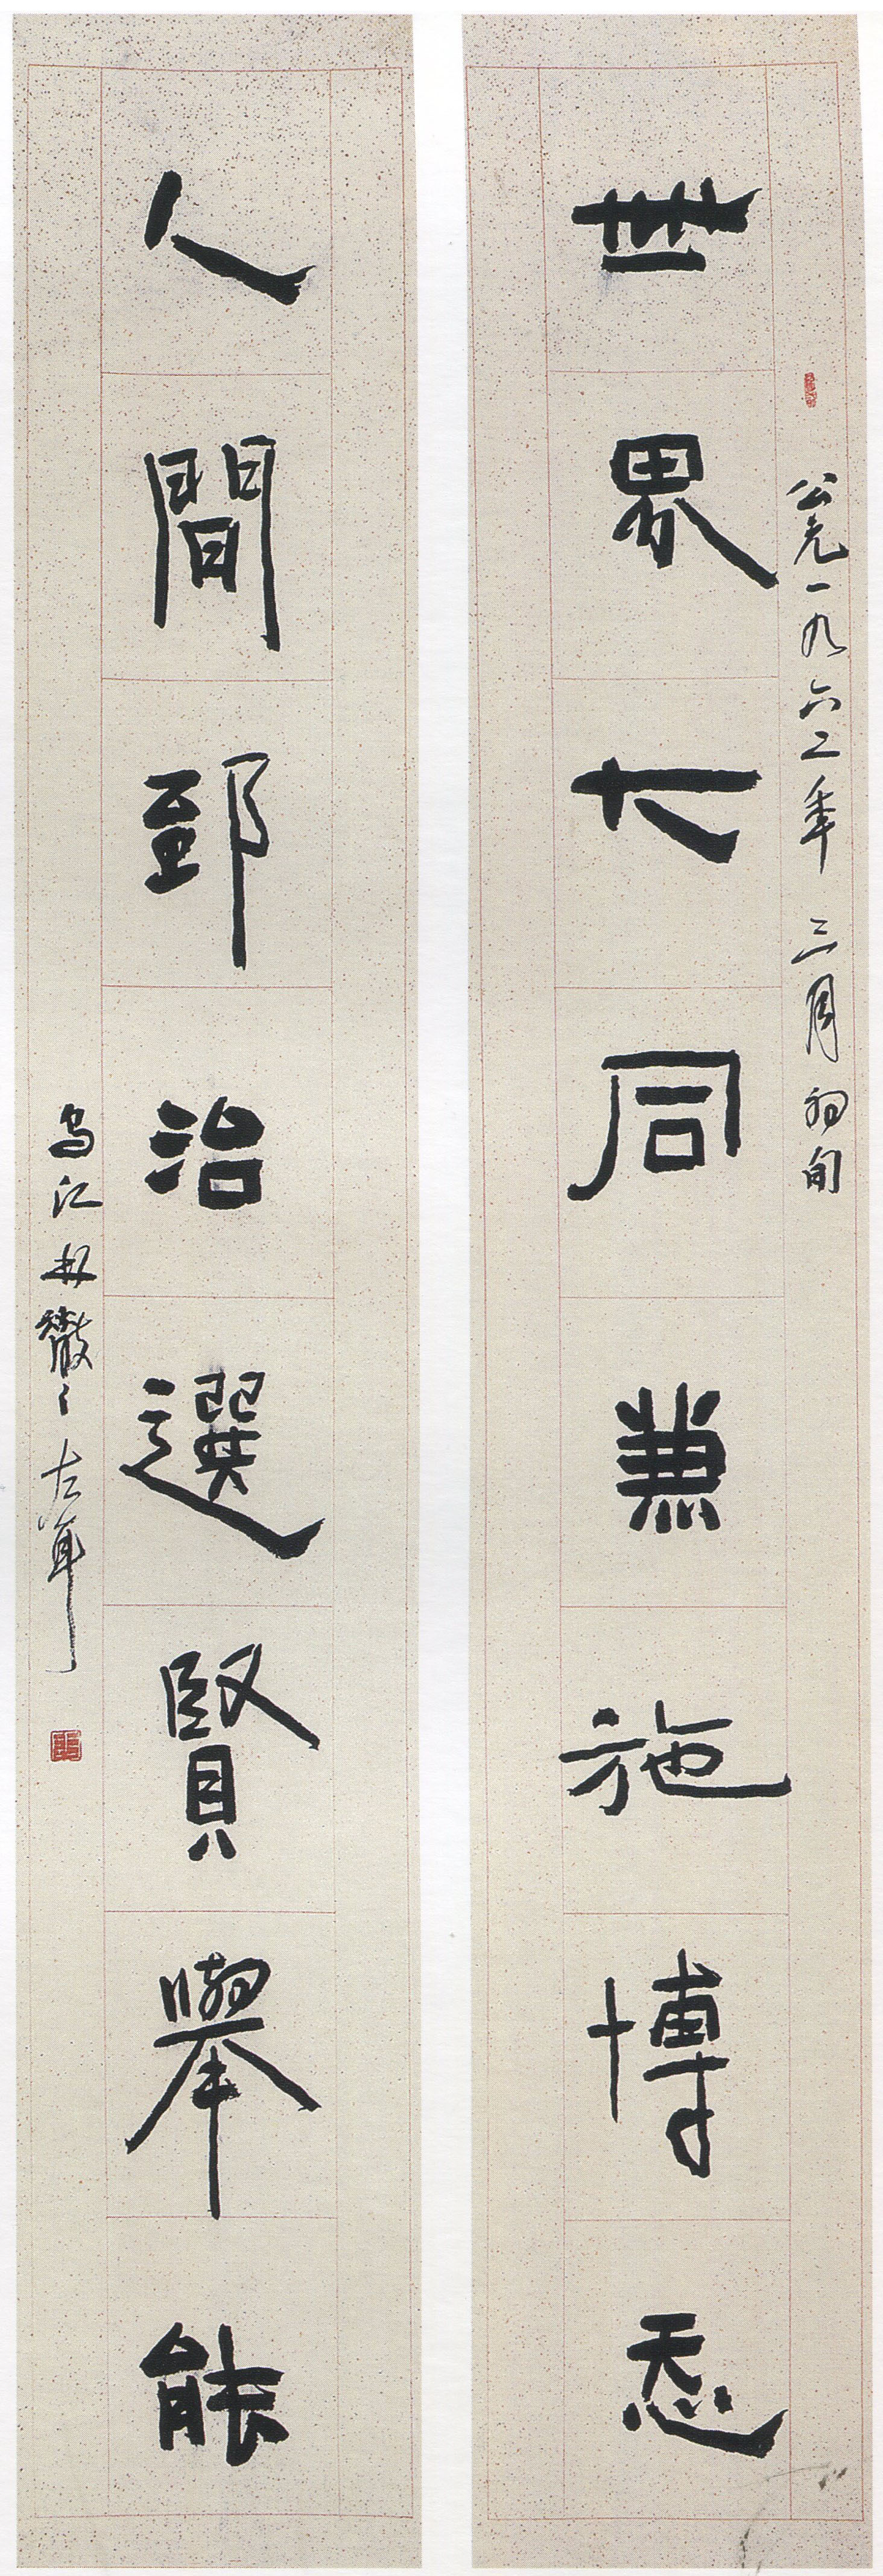 公元一九六二年三月初旬
世界大同兼施博㤅
人間郅治選賢舉能
烏江林散之左耳